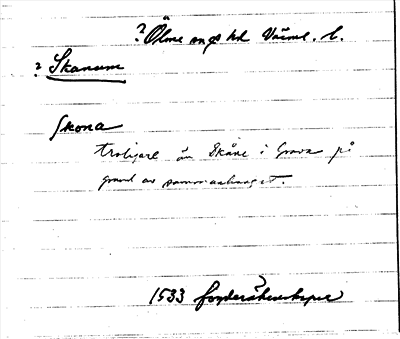 ? Ölme sn o hd Värml. l.
? Skanum
Skona
troligare än Skåne i Grava på
grund av sammanhanget.
1533